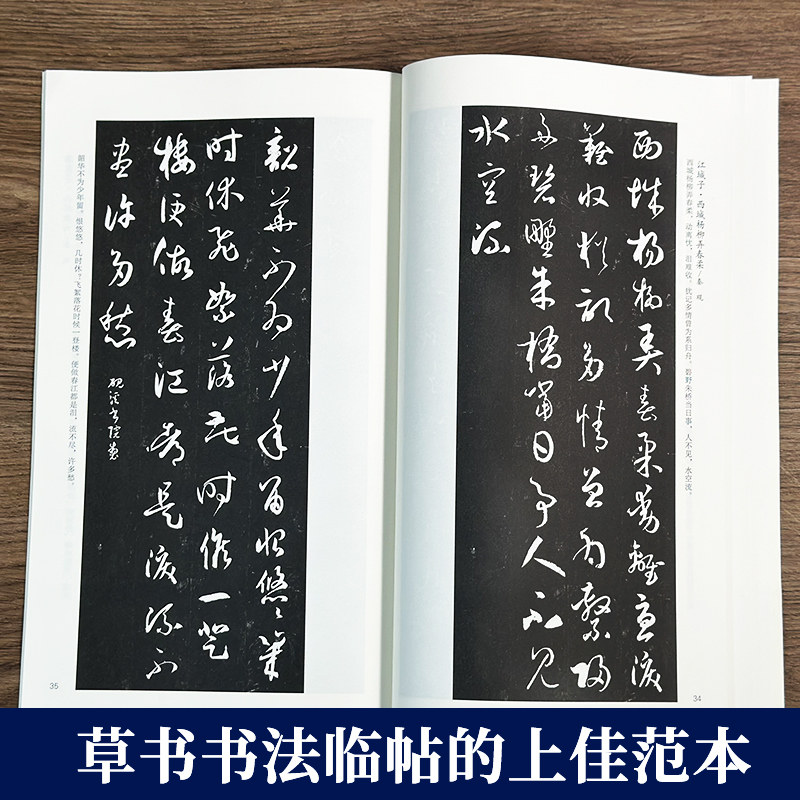 江城子·西城杨柳弄春柔/秦 观
西城杨柳弄春柔。动离忧,泪难收。犹记多情曾为系归舟。碧野朱桥当日事,人不见,水空流。
西城楊柳弄春柔動離憂淚
難收猶記多情曾為繫歸
舟碧野朱橋當日事人不見
水空流
34
韶華不為少年留恨悠々幾
時休飛絮落花時候一登
樓便做春江都是淚流不
盡許多愁
韶华不为少年留。恨悠悠,几时休?飞絮落花时候一登楼。便做春江都是泪,流不尽,许多愁。
35
草书书法临帖的上佳范本